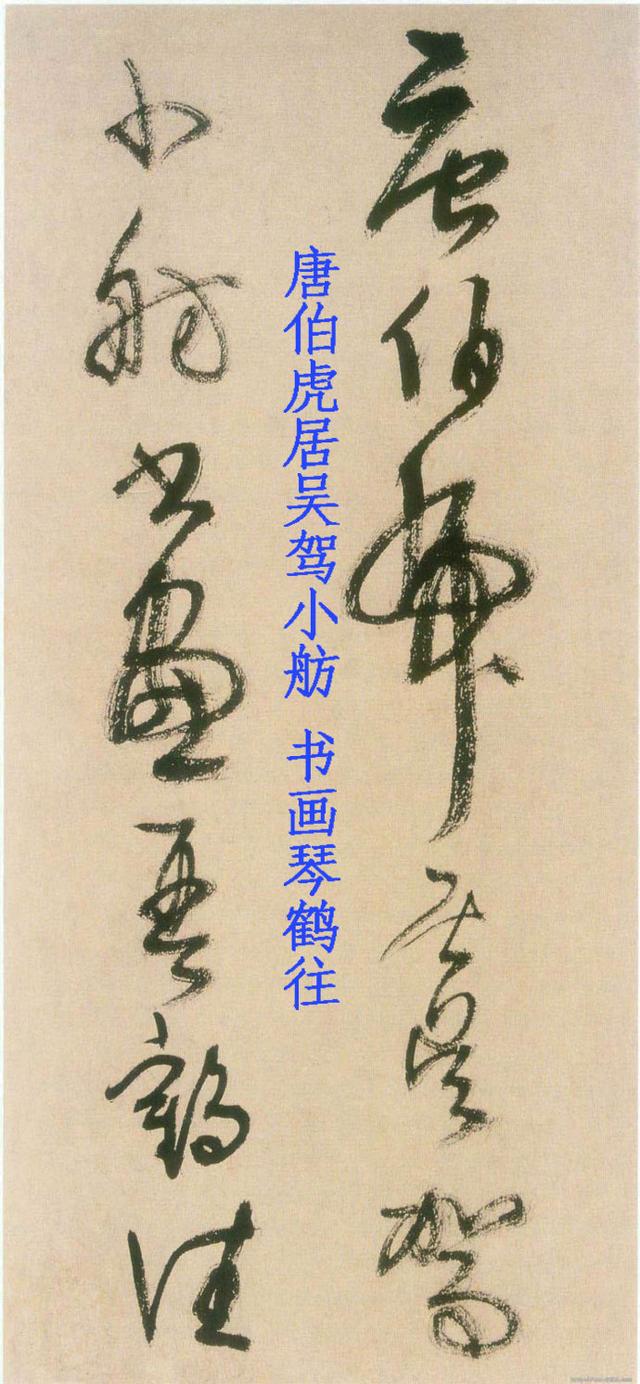 唐伯虎居吴駕
唐伯虎居吴驾小舫 书画琴鹤往
小舫書畫琴鶴往